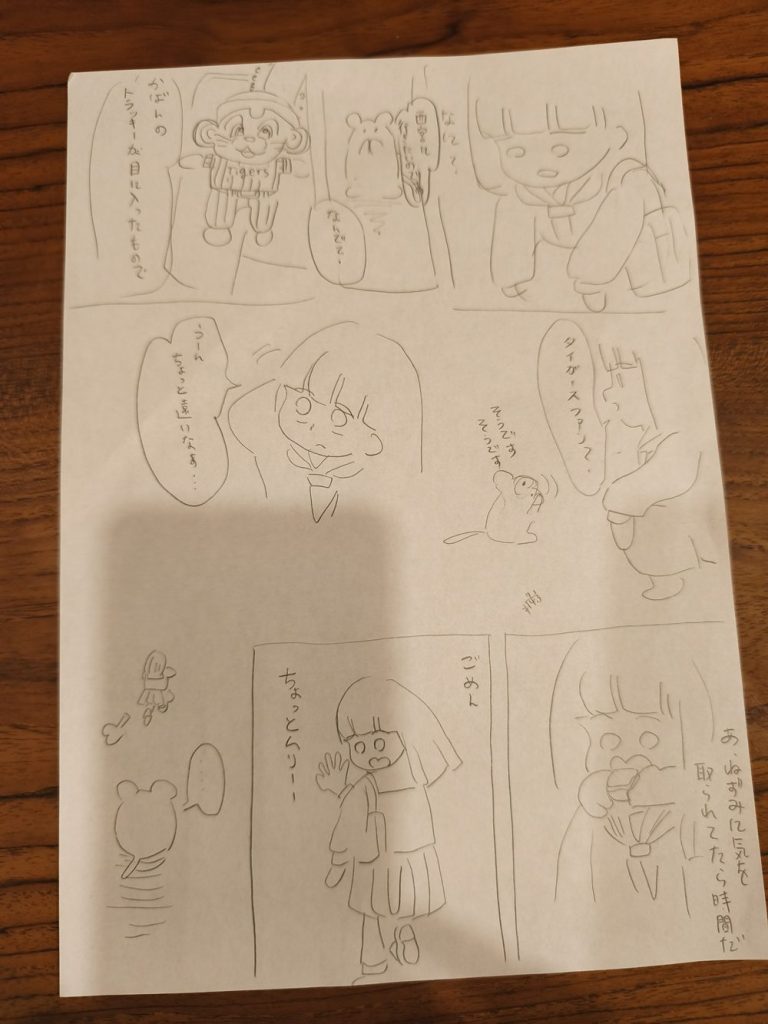 なにて、
西宮に
なんでて、
Tigers
かばんの
トラッキーが目に入ったもので
タイガースファンて、
そうです
そうです
うーん
ちょっと遠いなぁ…
あ、ねずみに気を
取られてたら時間だ
ごめん
ちょっとムリーー
…